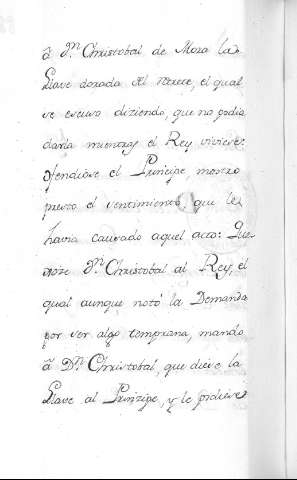 â Dⁿ Christobal de Mora la
Llave dorada del retrete, el qual
se escuso diziendo, que no podia
darla mientras el Rey viviese:
ofendiose el Principe, mostro
presto el sentimiento, que le
havia causado aquel acto: Que-
xose Dⁿ Christobal al Rey, el
qual aunque notó la Demanda
por ser algo temprana, mando
â Dⁿ Christobal, que diese la
Llave al Principe, y le pidiese